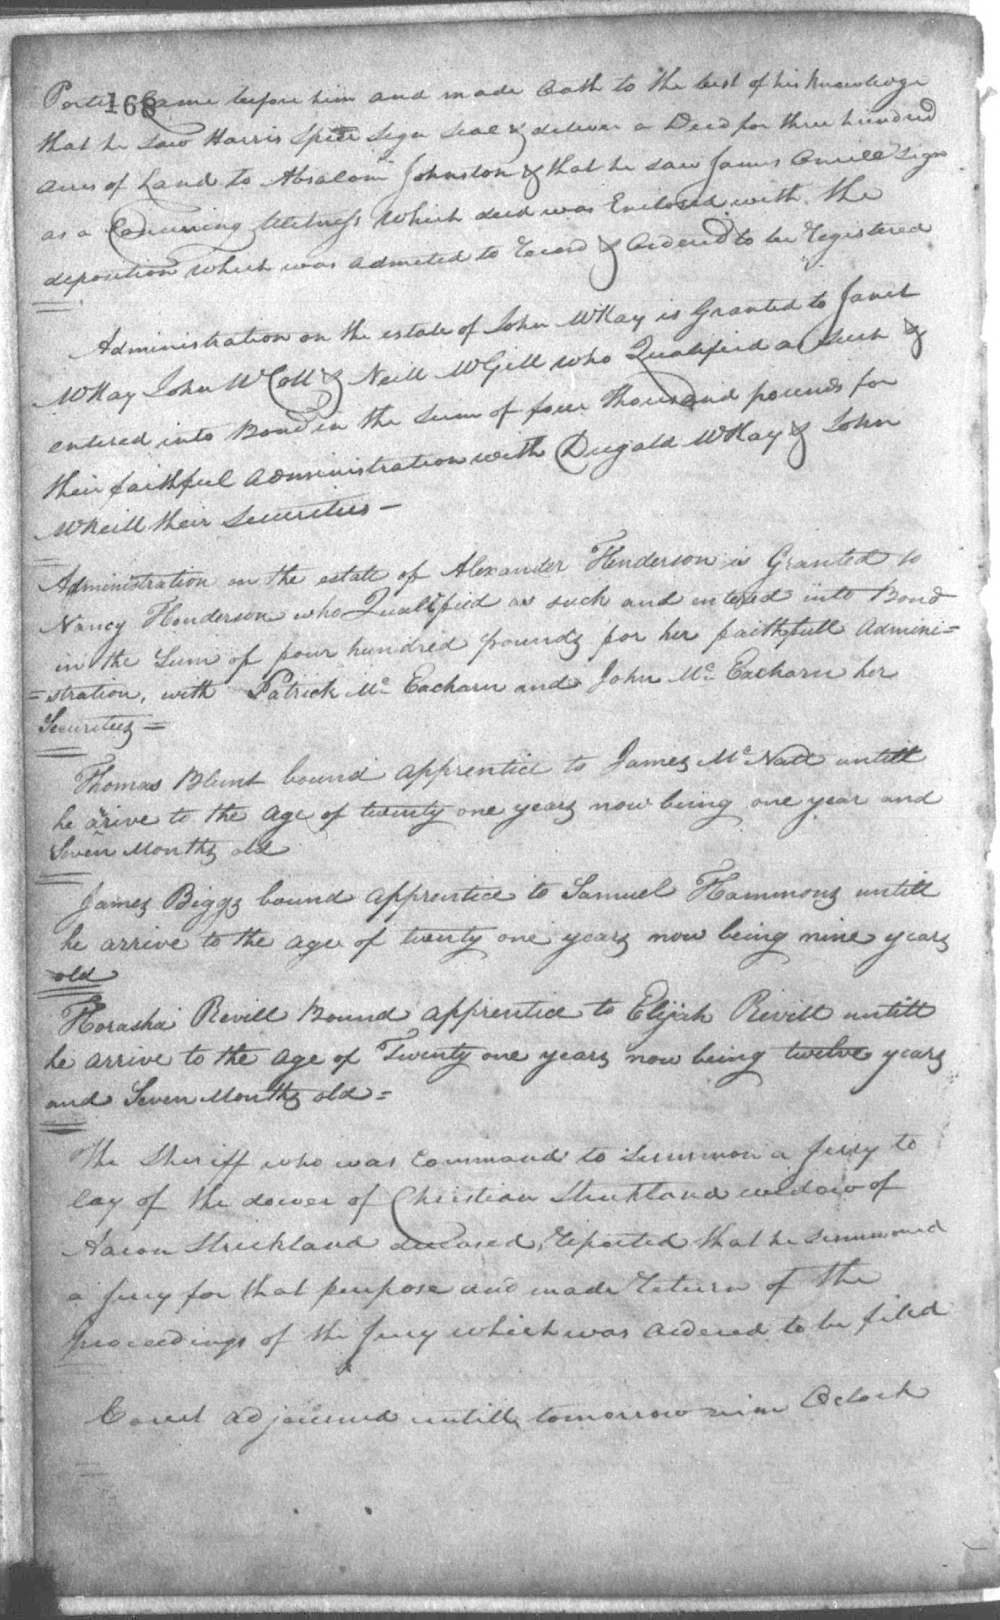 168
Porter Came before him and made Oath to the best of his Knowledge
that he saw Harris Spiers Sign Seal & deliver a Deed for three hundred
acres of Land to Absalom Johnston & that he saw James Sign
as a Concurring Witness Which deed was Enclosed with the
deposition which was admited to Record & Ordered to be Registered
Administration on the estate of John McKay is Granted to Janet
McKay John McColl & Neill McGill who Qualified as Such &
entered into Bond in the Sum of four thousand pounds for
their faithful Administration with Dugald McKay & John
McNeill their Securities —
Administration on the estate of Alexander Henderson is Granted to
Nancy Henderson who Qualified as such and entered into Bond
in the Sum of four hundred pounds for her faithfull Admini=
=stration, with Patrick Mc Eacharn and John Mc Eacharn her
Securities =
Thomas Blunt bound apprentice to James Mc Natt untill
he arive to the age of twenty one years now being one year and
Seven Months old
James Biggs bound apprentice to Samuel Hammons untill
he arrive to the age of twenty one years now being nine years
old
Horasha Revill Bound apprentice to Elijah Revill untill
he arrive to the age of Twenty one years now being twelve years
and Seven Months old =
The Sheriff who was Command to Summon a Jury to
lay of the dower of Christian Strickland widow of
Aaron Strickland deceased, Reported that he summoned
a Jury for that purpose and made Return of the
proceedings of the Jury which was Ordered to be filed
Court adjourned untill tomorrow nine Oclock